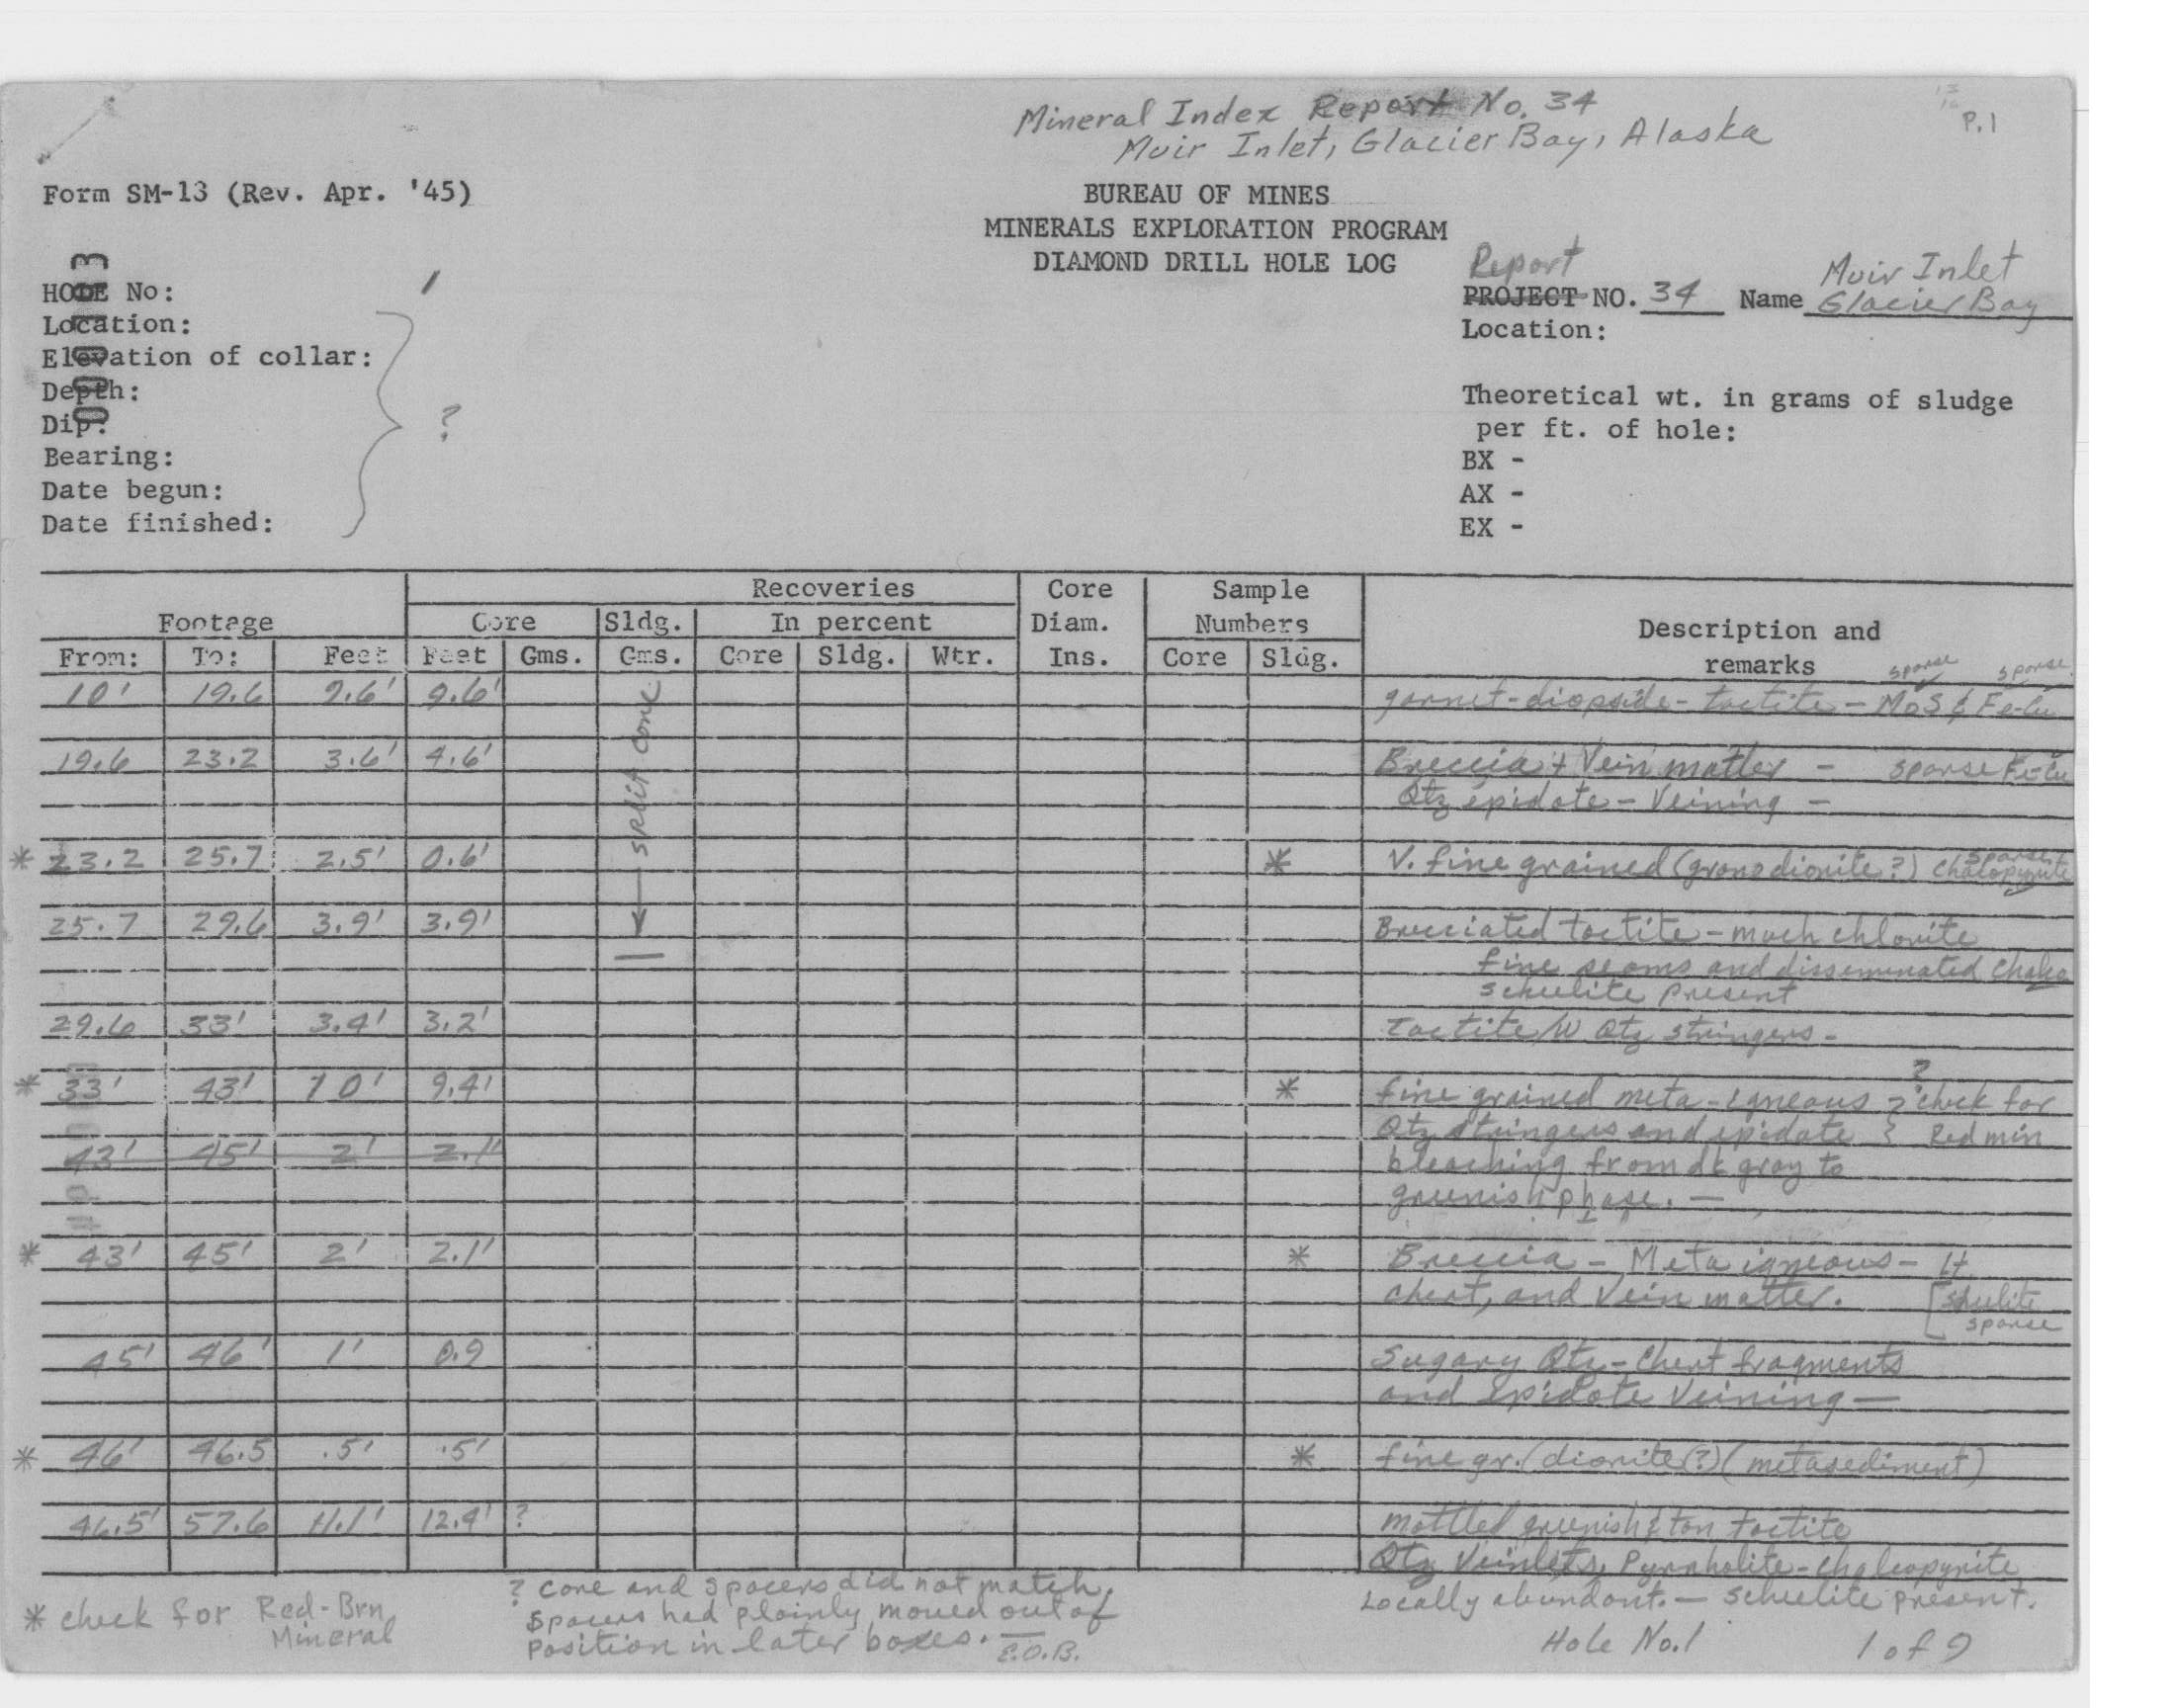 Mineral Index Report No. 34
Muir Inlet, Glacier Bay, Alaska
P.1
Form SM-13 (Rev. Apr. '45)
BUREAU OF MINES
MINERALS EXPLORATION PROGRAM
DIAMOND DRILL HOLE LOG
HOLE No: 1
Location:
Elevation of collar:
Depth:
Dip:
Bearing:
Date begun:
Date finished:
?
Report Muir Inlet
PROJECT NO. 34 Name Glacier Bay
Location:
Theoretical wt. in grams of sludge
per ft. of hole:
BX -
AX -
EX -
Recoveries Core Sample
Footage Core Sldg. In percent Diam. Numbers Description and
From: To: Feet Feet Gms. Gms. Core Sldg. Wtr. Ins. Core Sldg. remarks
sparse sparse
10' 19.6 9.6' 9.6' garnet-diopside-tactite - MoS & Fe-Cu
split core
19.6 23.2 3.6' 4.6' Breccia + Vein matter - sparse Fe-Cu
Qtz epidote - Veining -
* 23.2 25.7 2.5' 0.6' * V. fine grained (granodiorite?) sparse chalcopyrite
25.7 29.6 3.9' 3.9' Brecciated tactite - much chlorite
fine seams and disseminated chalco
scheelite present
29.6 33' 3.4' 3.2' tactite/w Qtz stringers -
?
* 33' 43' 10' 9.4' * fine grained meta-igneous } check for
Qtz stringers and epidote } Red min
43' 45' 2' 2.1' bleaching from dk gray to
greenish phase. -
* 43' 45' 2' 2.1' * Breccia - Meta igneous - Lt
chert, and Vein matter. [shelite
sparse
45' 46' 1' 0.9 Sugary Qtz - Chert fragments
and Epidote Veining -
* 46' 46.5 .5' .5' * fine gr. (diorite(?) (metasediment)
46.5' 57.6 11.1' 12.4' ? mottled greenish & tan tactite
Qtz Veinlets, Pyrrholite - Chalcopyrite
Locally abundant. - scheelite present.
* check for Red-Brn
Mineral
? Core and spacers did not match.
Spacers had plainly moved out of
position in later boxes. -
E.O.B.
Hole No.1 1 of 9